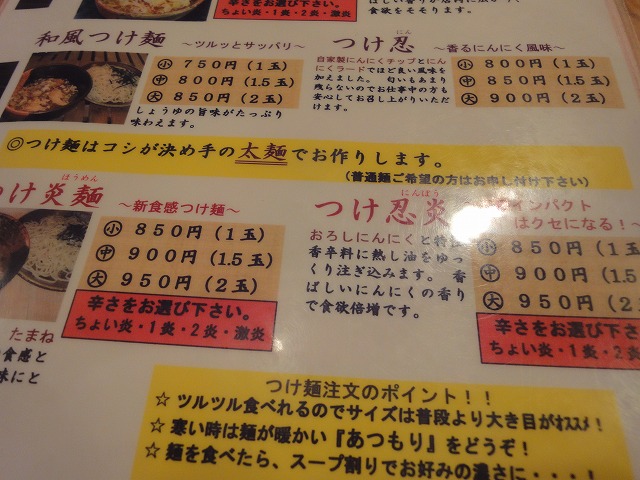 ちょい炎・1炎・2炎・激炎
食欲をそそります。
和風つけ麺 ～ツルッとサッパリ～
小 750円（1玉）
中 800円（1.5玉）
大 850円（2玉）
しょうゆの旨味がたっぷり
味わえます。
にん
つけ忍 ～香るにんにく風味～
自家製にんにくチップとにん
にくラードでほど良い風味を
加えました。匂いもあまり
残らないのでお仕事中の方も
安心してお召し上がりいただ
けます。
小 800円（1玉）
中 850円（1.5玉）
大 900円（2玉）
◎つけ麺はコシが決め手の太麺でお作りします。
（普通麺ご希望の方はお申し付け下さい）
ほうめん
つけ炎麺
～新食感つけ麺～
小 850円（1玉）
中 900円（1.5玉）
大 950円（2玉）
辛さをお選び下さい。
ちょい炎・1炎・2炎・激炎
たまね
食感と
味にと
にんぼう
つけ忍炎
インパクト
はクセになる！～
おろしにんにくと特
香辛料に熱し油をゆっ
くり注ぎ込みます。香
ばしいにんにくの香り
で食欲倍増です。
小 850円（1玉
中 900円（1.5
大 950円（2玉
辛さをお選び下さ
ちょい炎・1炎・2炎
つけ麺注文のポイント！！
☆ツルツル食べれるのでサイズは普段より大き目がｵｽｽﾒ！
☆寒い時は麺が暖かい『あつもり』をどうぞ！
☆麺を食べたら、スープ割りでお好みの濃さに・・・・！